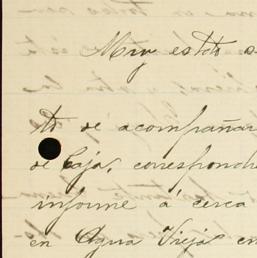 Muy est
de acompañar
de Caja, correspond
informe á cerca
en Agua Vieja en